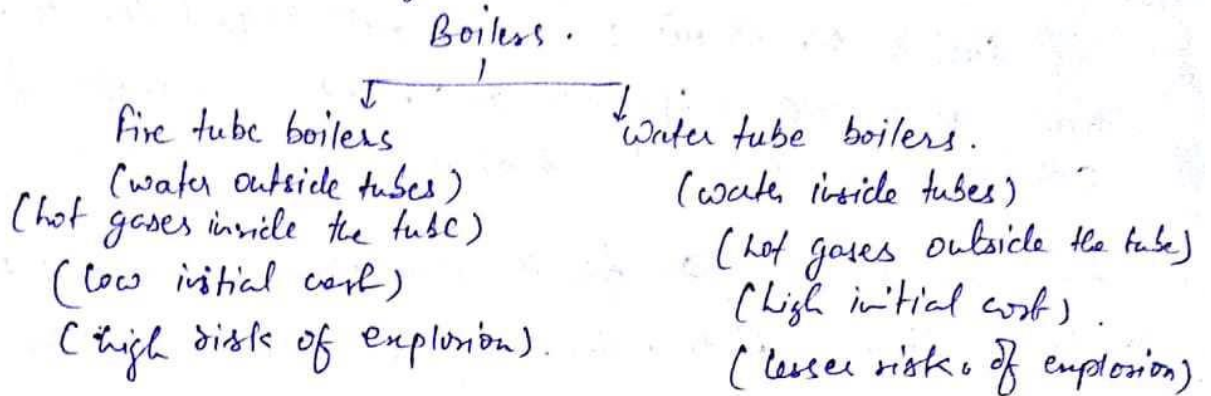 Boilers.
fire tube boilers
(water outside tubes)
(hot gases inside the tube)
(low initial cost)
(high risk of explosion).
water tube boilers.
(water inside tubes)
(hot gases outside the tube)
(high initial cost).
(lesser risk of explosion)